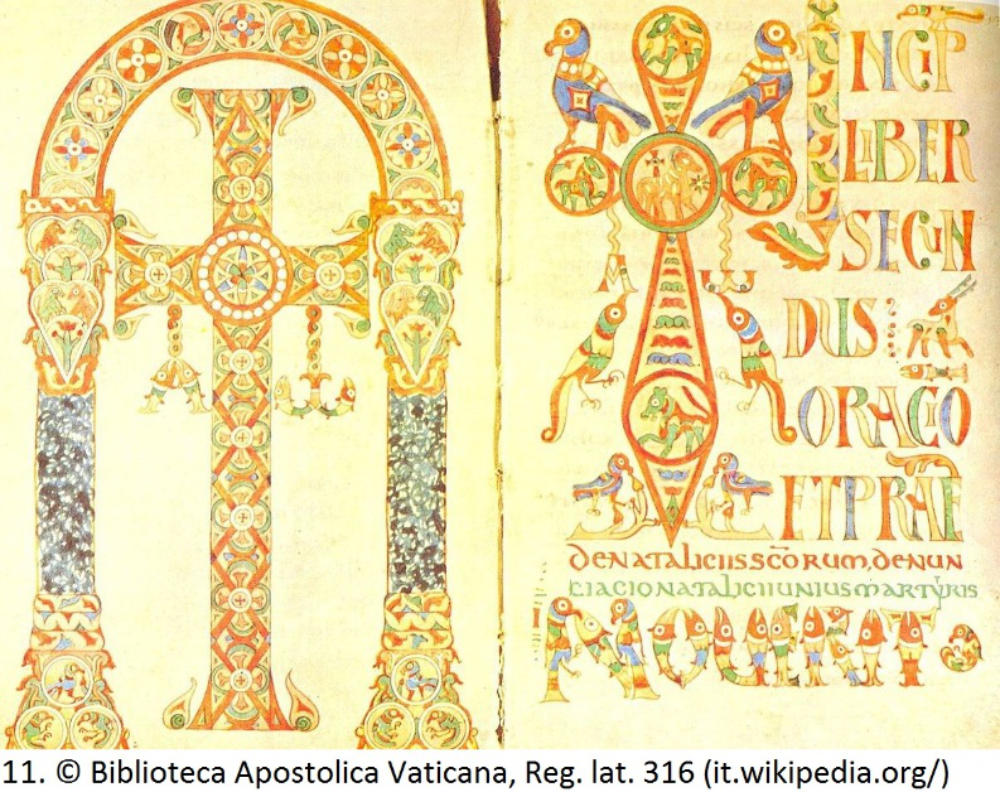 A ω
A ω
INCIP
LIBER
SECUN
DUS
ORACIO
ET PRAE
DENATALICIISSC̄ORUM,DENUN
CIACIONATALICIIUNIUSMARTYRIS
NOUERIT
11. © Biblioteca Apostolica Vaticana, Reg. lat. 316 (it.wikipedia.org/)